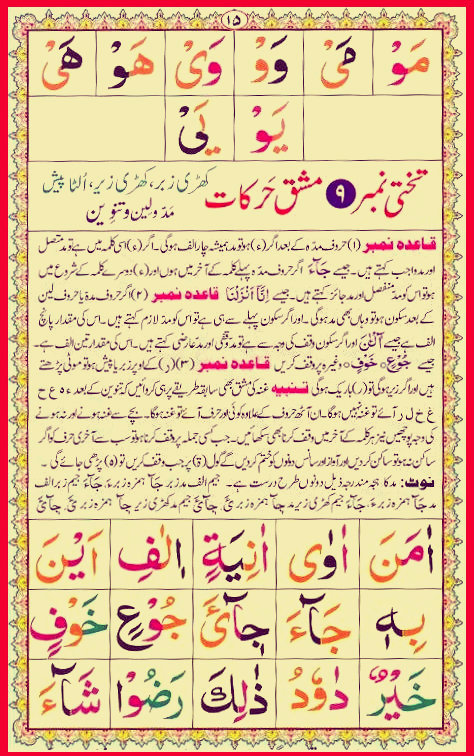 ١٥
مَوْ مَیْ وَوْ وَیْ هَوْ هَیْ
یَوْ یَیْ
تختی نمبر ٩ مشق حَرکات کھڑی زبر، کھڑی زیر، اُلٹا پیش
مدّ ولین و تنوین
قاعدہ نمبر (١) حروف مدّہ کے بعد اگر (ء) ہو تو مد ہمیشہ چار الف ہوگی۔ اگر (ء) اسی کلمہ میں ہے تو مد متصل
اور مد واجب کہتے ہیں۔ جیسے جَآءَ اگر حروف مدّہ پہلے کلمہ کے آخر میں ہوں اور (ء) دوسرے کلمہ کے شروع میں
ہو تو اس کو مد منفصل اور مد جائز کہتے ہیں۔ جیسے اِنَّآ اَنْزَلْنَا قاعدہ نمبر (٢) اگر حروف مدہ یا حروف لین
کے بعد سکون ہو تو وہاں بھی مد ہوگی۔ اور اگر سکون پہلے سے ہی ہے تو اس کو مد لازم کہتے ہیں۔ اس کی مقدار پانچ
الف ہے جیسے آٰلْـٰٔنَ اور اگر سکون وقف کی وجہ سے ہے تو مد وقفی اور مد عارضی کہتے ہیں۔ اس کی مقدار تین الف ہے۔
جیسے جُوْعٍ، خَوْفٍ وغیرہ پر وقف کریں قاعدہ نمبر (٣) (ر) کے اوپر زبر یا پیش ہو تو موٹی پڑھتے
ہیں اور اگر زیر ہوگی تو (ر) باریک ہوگی تنبیہ غنہ کی مشق بھی سابقہ طریقے پر ہی کروائیں کہ تنوین کے بعد ء ہ ع ح
غ خ ل ر آئے تو غنہ نہیں ہوگا۔ ان آٹھ حروف کے علاوہ کوئی اور حرف آئے تو غنہ ہوگا۔ بچے سے غنہ ہونے اور نہ ہونے
کی وجہ پوچھیں نیز ہر کلمہ کے آخر میں وقف کرنا بھی سکھائیں۔ جب کسی جملہ پر وقف کرنا ہو تو سب سے آخری حرف کو اگر
ساکن نہ ہو تو ساکن کردیں اور آواز اور سانس دونوں کو ختم کردیں گے گول (ة) پر جب وقف کریں تو (ہ) پڑھی جائے گی۔
نوٹ: مد کا ہجہ مندرجہ ذیل دونوں طرح درست ہے۔ جیم الف مد زبر جَآ ہمزہ زبر ءَ، جَآءَ جیم زبر الف
مد جَآ ہمزہ زبر ءَ، جَآءَ جیم کھڑی زیر مد جآ ہمزہ زبر ئَ، جِآئَ جیم مد کھڑی زیر جآ ہمزہ زبر ئَ، جِآئَ
اٰمَنَ اٰوٰی اٰنِیَةٍ اٖلٰفِ اَیْنَ
بِهٖ جَآءَ جِآئَ جُوْعٍ خَوْفٍ
خَیْرٌ دَاوٗدُ ذٰلِكَ رَضُوْا شَآءَ